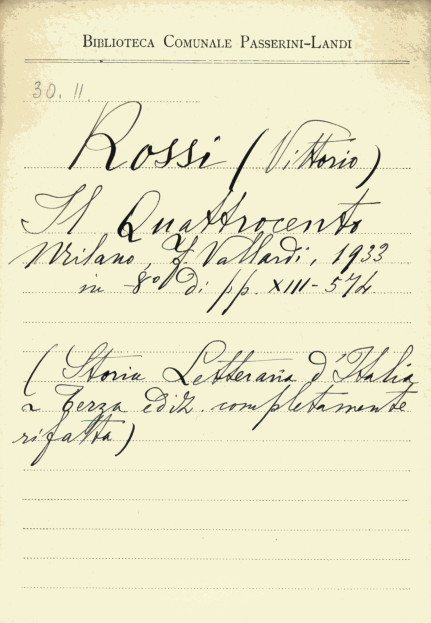 BIBLIOTECA COMUNALE PASSERINI-LANDI
30. 11.
Rossi (Vittorio)
Il Quattrocento
Milano, F. Vallardi, 1933
in -8° di pp. XIII-574
(Storia Letteraria d'Italia
Terza ediz. completamente
rifatta)